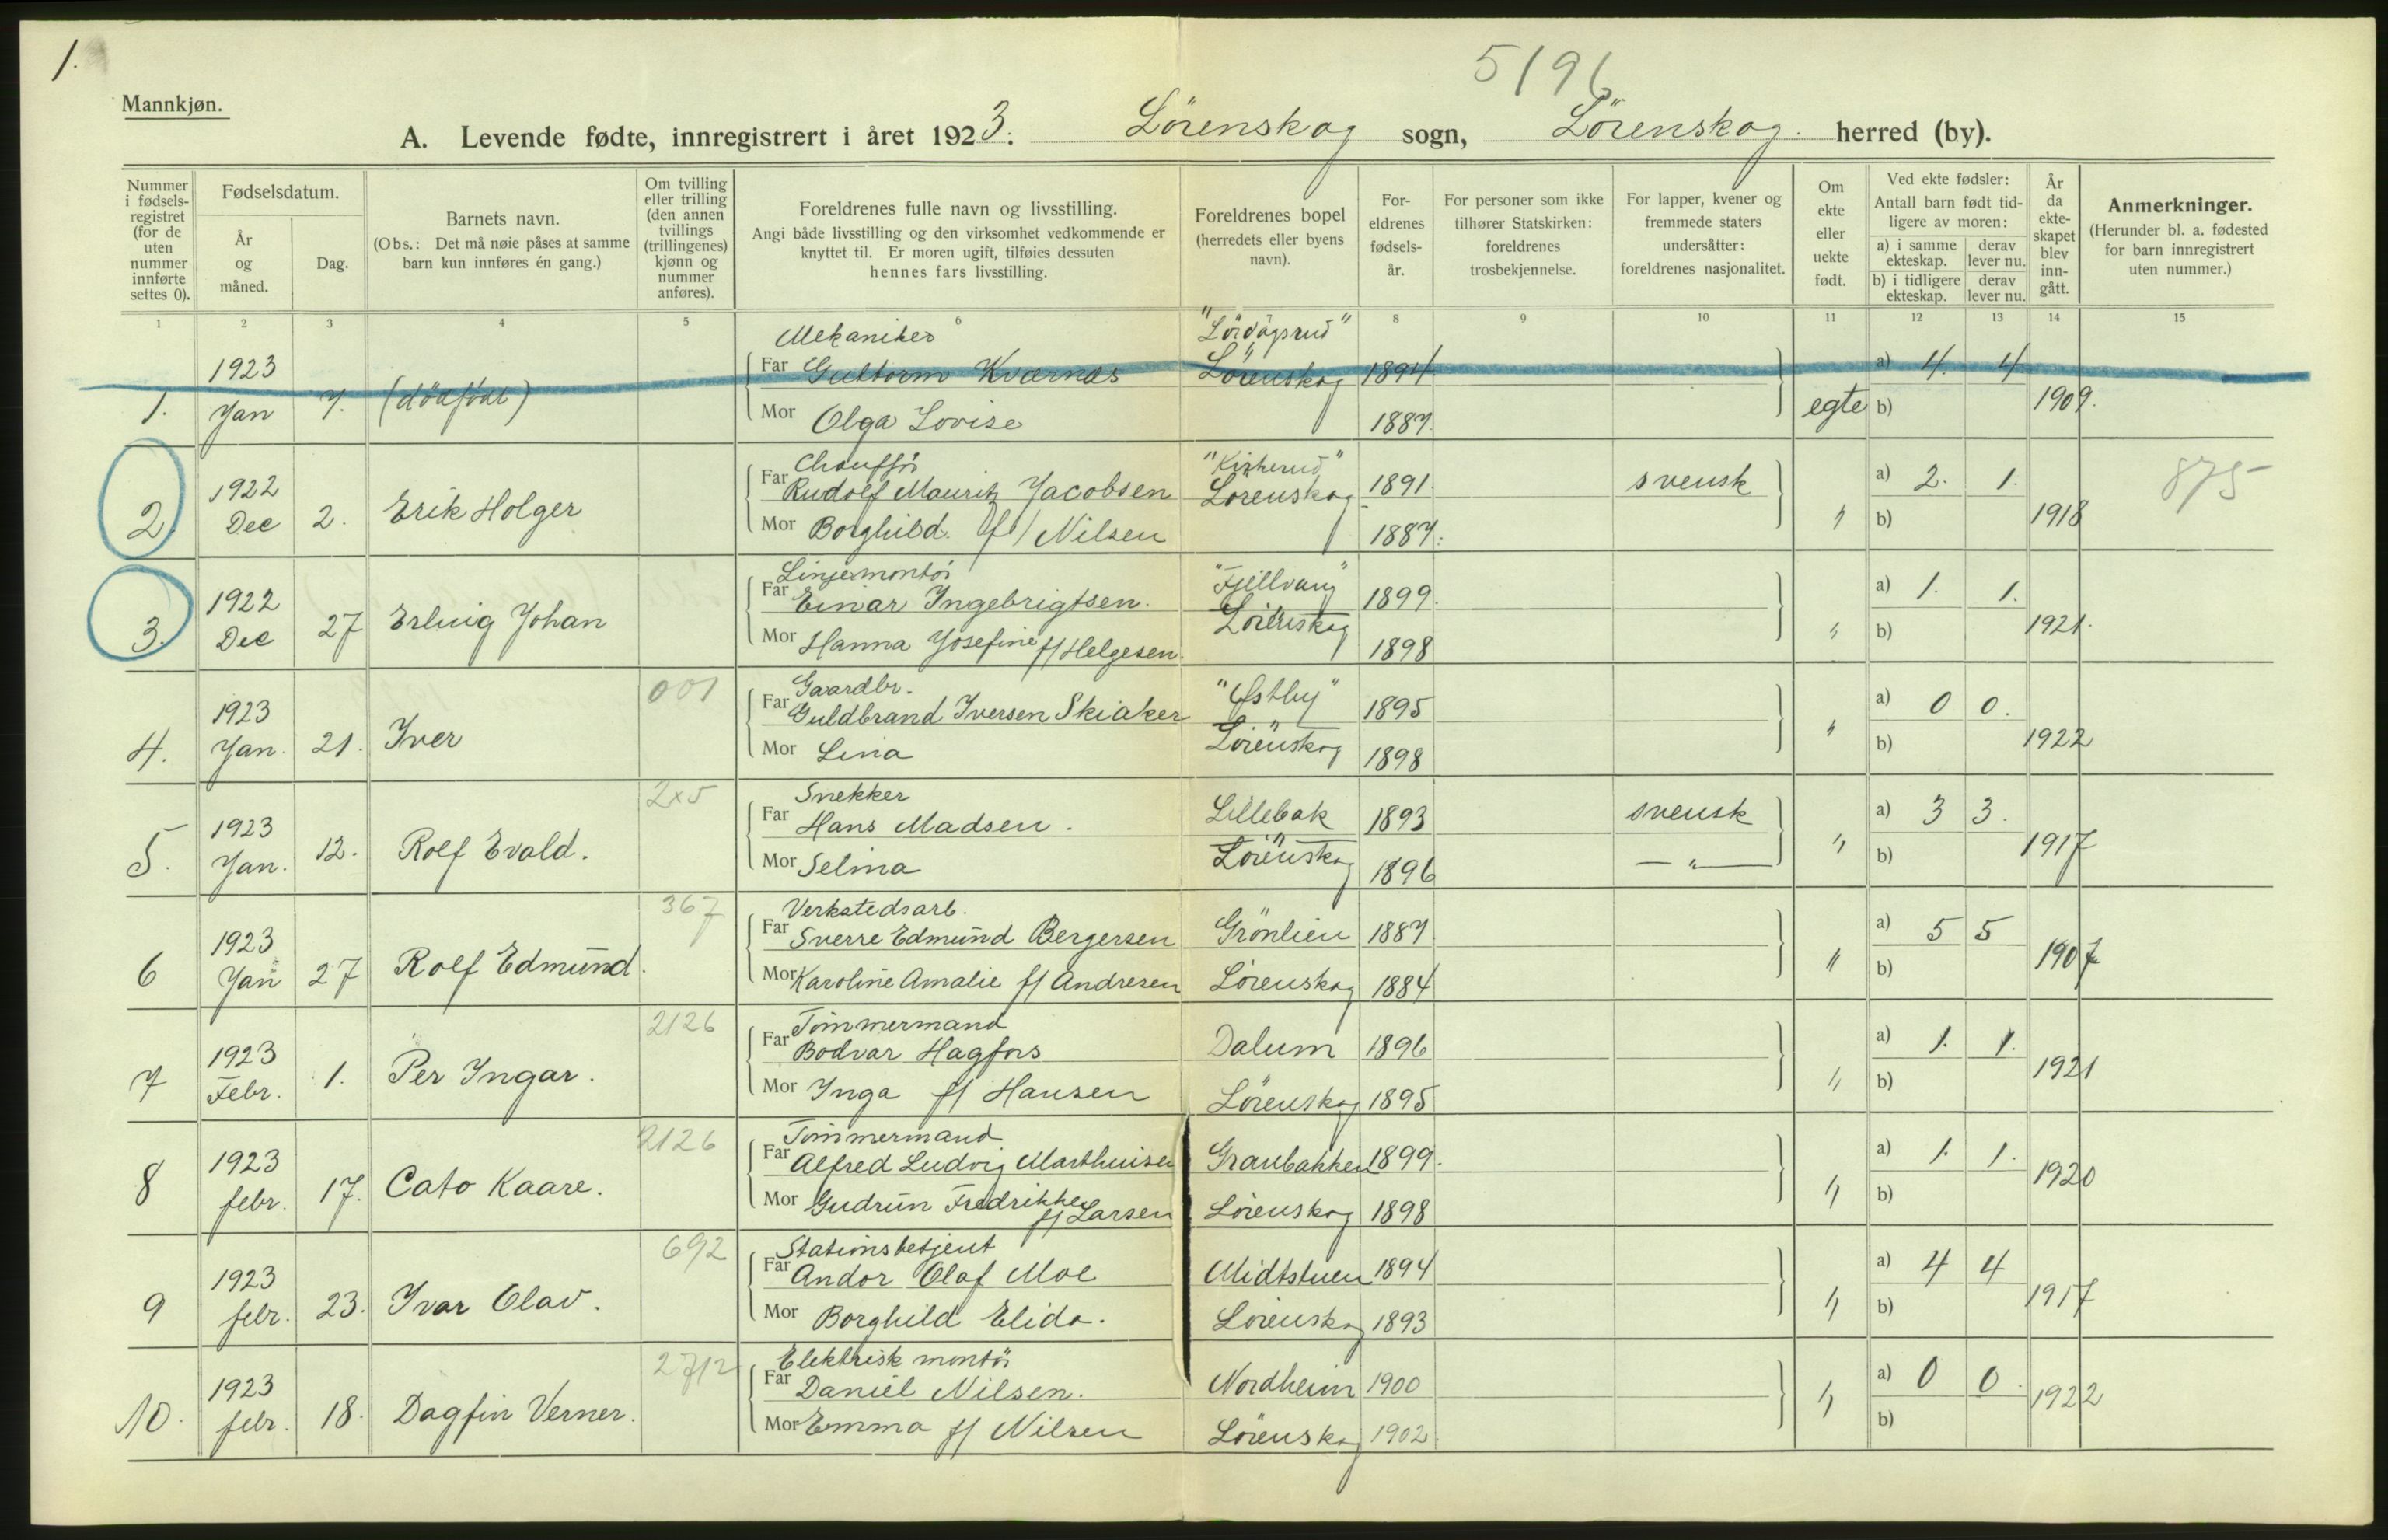 1.
5196
Mannkjøn.
A. Levende fødte, innregistrert i året 1923. Lörenskog sogn, Lörenskog. herred (by).
Nummer i fødsels-registret (for de uten nummer innførte settes 0).
Fødselsdatum.
År og måned.
Dag.
Barnets navn.
(Obs.: Det må nøie påses at samme barn kun innføres én gang.)
Om tvilling eller trilling (den annen tvillings (trillingenes) kjønn og nummer anføres).
Foreldrenes fulle navn og livsstilling.
Angi både livsstilling og den virksomhet vedkommende er knyttet til. Er moren ugift, tilføies dessuten hennes fars livsstilling.
Foreldrenes bopel (herredets eller byens navn).
For-eldrenes fødsels-år.
For personer som ikke tilhører Statskirken: foreldrenes trosbekjennelse.
For lapper, kvener og fremmede staters undersåtter: foreldrenes nasjonalitet.
Om ekte eller uekte født.
Ved ekte fødsler: Antall barn født tid-ligere av moren:
a) i samme ekteskap. derav lever nu.
b) i tidligere ekteskap. derav lever nu.
År da ekte-skapet blev inn-gått.
Anmerkninger.
(Herunder bl. a. fødested for barn innregistrert uten nummer.)
1 2 3 4 5 6 8 9 10 11 12 13 14 15
Mekaniker
1923 Far Guttorm Kværnæs Lörenskog 1894 a) 4. 4
1. Jan 7. (dödfödt) Mor Olga Lovise 1887. egte b) 1909.
Chaufför
1922 Far Rudolf Mauritz Jacobsen Lörenskog 1891. svensk a) 2. 1. 875
2. Dec 2. Erik Holger Mor Borghild f/ Nilsen 1887. " b) 1918
Linjemontör "Fjellvang"
1922 Far Einar Ingebrigtsen. Lörenskog 1899. a) 1. 1.
3. Dec 27 Erling Johan Mor Hanna Josefine f/ Helgesen. 1898 " b) 1921.
001 Gaardbr. "Østby"
1923 Far Guldbrand Iversen Skiaker 1895 a) 0 0.
4. Jan. 21. Iver Mor Lina Lörenskog 1898 " b) 1922
2x5 Snekker
1923 Far Hans Madsen. Lillebak 1893 svensk a) 3 3.
5. Jan. 12. Rolf Evald. Mor Selma Lörenskog 1896 — " — " b) 1917
367 Verkstedsarb.
1923 Far Sverre Edmund Bergersen Grönlien 1887 a) 5 5
6 Jan 27 Rolf Edmund. Mor Karoline Amalie f/ Andresen Lörenskog 1884 " b) 1907
2126 Tömmermand
1923 Far Bodvar Hagfors Dalum 1896 a) 1. 1.
7 Febr. 1. Per Ingar. Mor Inga f/ Hansen Lörenskog 1895 " b) 1921
2126 Tömmermand
1923 Far Alfred Ludvig Marthinisen Granbakken 1899. a) 1. 1.
8 febr. 17. Cato Kaare. Mor Gudrun Fredrikke f/ Larsen Lörenskog 1898 " b) 1920
692 Stationsbetjent
1923 Far Andor Olaf Moe Midtstuen 1894 a) 4 4
9 febr. 23. Ivar Olav. Mor Borghild Elida. Lörenskog 1893 " b) 1917
2712 Elektrisk montör
1923 Far Daniel Nilsen. Nordheim 1900 a) 0 0.
10. febr. 18. Dagfin Verner. Mor Emma f/ Nilsen Lörenskog 1902. " b) 1922